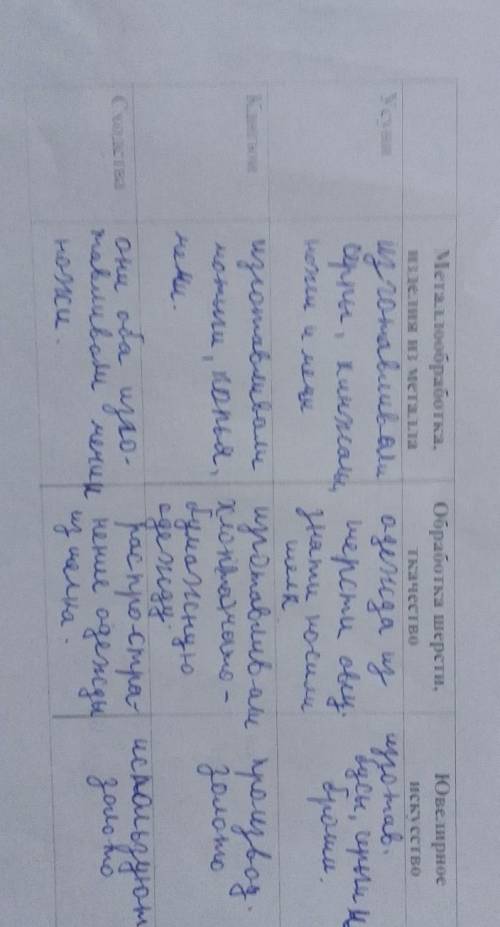 Металлообработка,
изделия из металла
Обработка шерсти,
ткачество
Ювелирное
искусство
Усуни
изготавливали
серпы, кинжалы,
ножи и мечи
одежда из
шерсти овец.
знати носили
шелк
изготав.
бусы, серьги и
броши.
Кангюи
изготавливали
мотыги, копья,
мечи.
изготавливали
хлопчато-
бумажную
одежду.
производ.
золото
Сходства
они оба изго-
тавливали мечи и
ножи.
распростра-
нение одежды
из
используют
золото